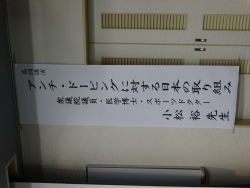 基調講演
アンチ・ドーピングに対する日本の取り組み
衆議院議員・医学博士・スポーツドクター
小松裕 先生